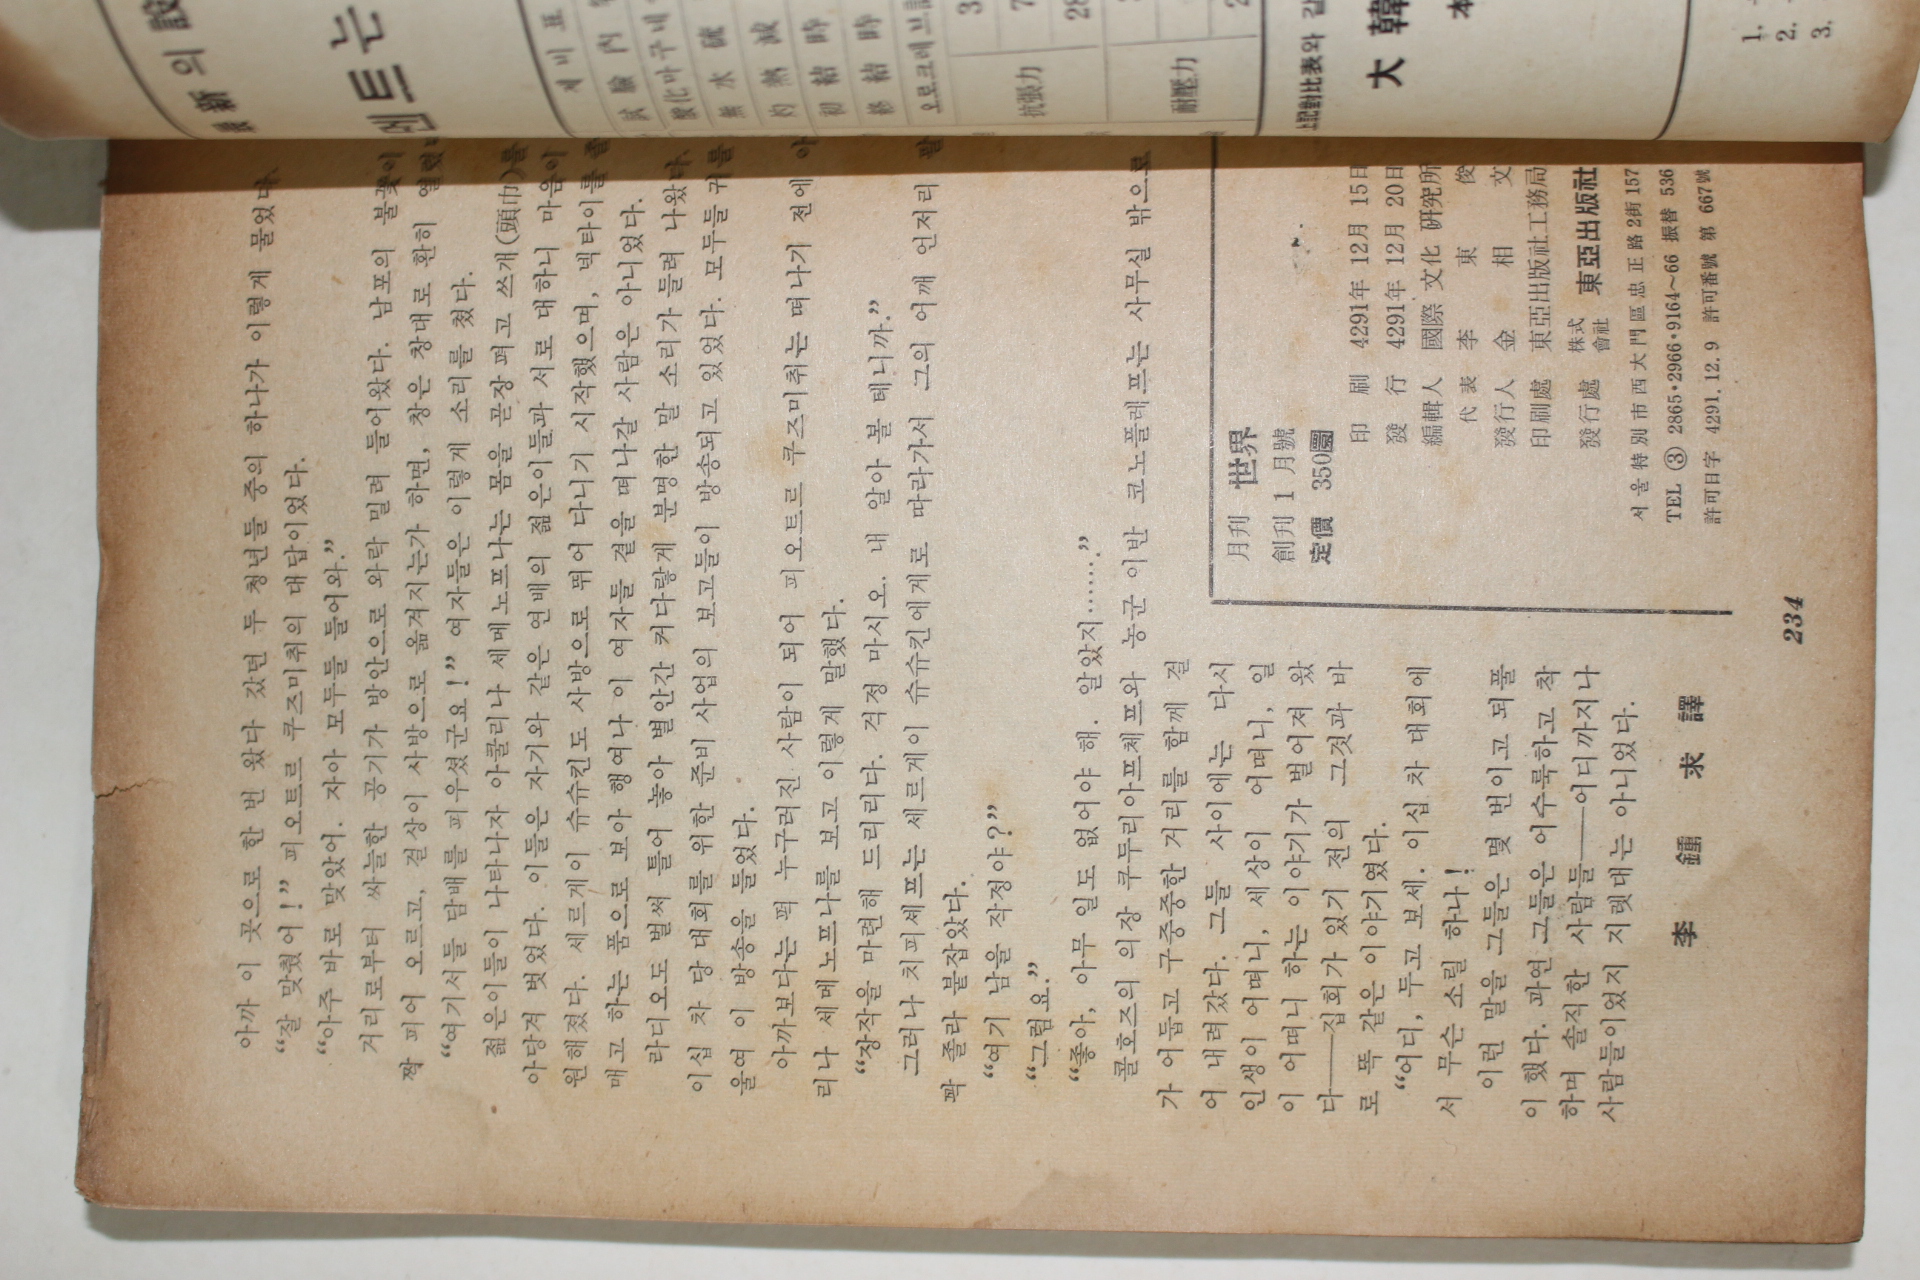 아까 이 곳으로 한 번 왔다 갔던 두 청년들 중의 하나가 이렇게 물었다.
“잘 맞췄어!” 피오트르 쿠즈미취의 대답이었다.
“아주 바로 맞았어. 자아 모두들 들어와.”
거리로부터 싸늘한 공기가 방안으로 와락 밀려 들어왔다. 남포의 불꽃이
짝 피어 오르고, 걸상이 사방으로 옮겨지는가 하면, 창은 창대로 환히 열렸
“여기서들 담배를 피우셨군요!” 여자들은 이렇게 소리를 쳤다.
젊은이들이 나타나자 아쿨리나 세메노프나는 몸을 곧장 펴고 쓰개(頭巾)를
아당겨 벗었다. 이들은 자기와 같은 연배의 젊은이들과 서로 대하니 마음이
원해졌다. 세르게이 슈슈킨도 사방으로 뛰어 다니기 시작했으며, 넥타이를 졸
매고 하는 품으로 보아 행여나 이 여자들 곁을 떠나갈 사람은 아니었다.
라디오도 벌써 틀어 놓아 별안간 커다랗게 분명한 말 소리가 들려 나왔다.
이십 차 당 대회를 위한 준비 사업의 보고들이 방송되고 있었다. 모두들 귀를
울여 이 방송을 들었다.
아까보다는 퍽 누구러진 사람이 되어 피오트르 쿠즈미취는 떠나기 전에 아
리나 세메노프나를 보고 이렇게 말했다.
“장작을 마련해 드리리다. 걱정 마시오. 내 알아 볼 테니까.”
그러나 치피셰프는 세르게이 슈슈킨에게로 따라가서 그의 어깨 언저리 팔
꽉 졸라 붙잡았다.
“여기 남을 작정야?”
“그럼요.”
“좋아, 아무 일도 없어야 해. 알았지……”
콜호즈의 의장 쿠두리아프체프와 농군 이반 코노플레프는 사무실 밖으로
가 어둡고 구중중한 거리를 함께 걸
어 내려갔다. 그들 사이에는 다시
인생이 어떠니, 세상이 어떠니, 일
이 어떠니 하는 이야기가 벌어져 왔
다——집회가 있기 전의 그것과 바
로 똑 같은 이야기였다.
“어디, 두고 보세. 이십 차 대회에
서 무슨 소릴 하나!
이런 말을 그들은 몇 번이고 되풀
이 했다. 과연 그들은 어수룩하고 착
하며 솔직한 사람들——어디까지나
사람들이었지 지렛대는 아니었다.
李 鍾 求 譯
月刊 世界
創刊 1 月號
定價 350圜
印刷 4291年 12月 15日
發行 4291年 12月 20日
編輯人 國際 文化 研究所
代表 李 東 俊
發行人 金 相 文
印刷處 東亞出版社工務局
發行處 株式會社 東亞出版社
서울 特別市 西大門區 忠正路 2街 157
TEL ③ 2865·2966·9164~66 振替 536
許可日字 4291.12.9 許可番號 第 667號
234
新의 設
멘트는
세 비 표
試驗內
酸化마구네
無水硫
灼熱減
初結時
終結時
오로크레브
抗張力
耐壓力
上記對比表와 같
大韓
本
1.
2.
3.